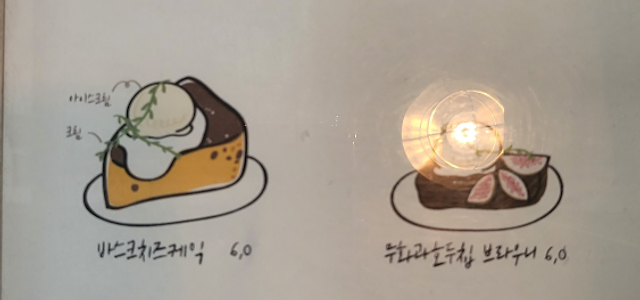 아이스크림
크림
바스크치즈케익 6,0
무화과호두칩 브라우니 6,0